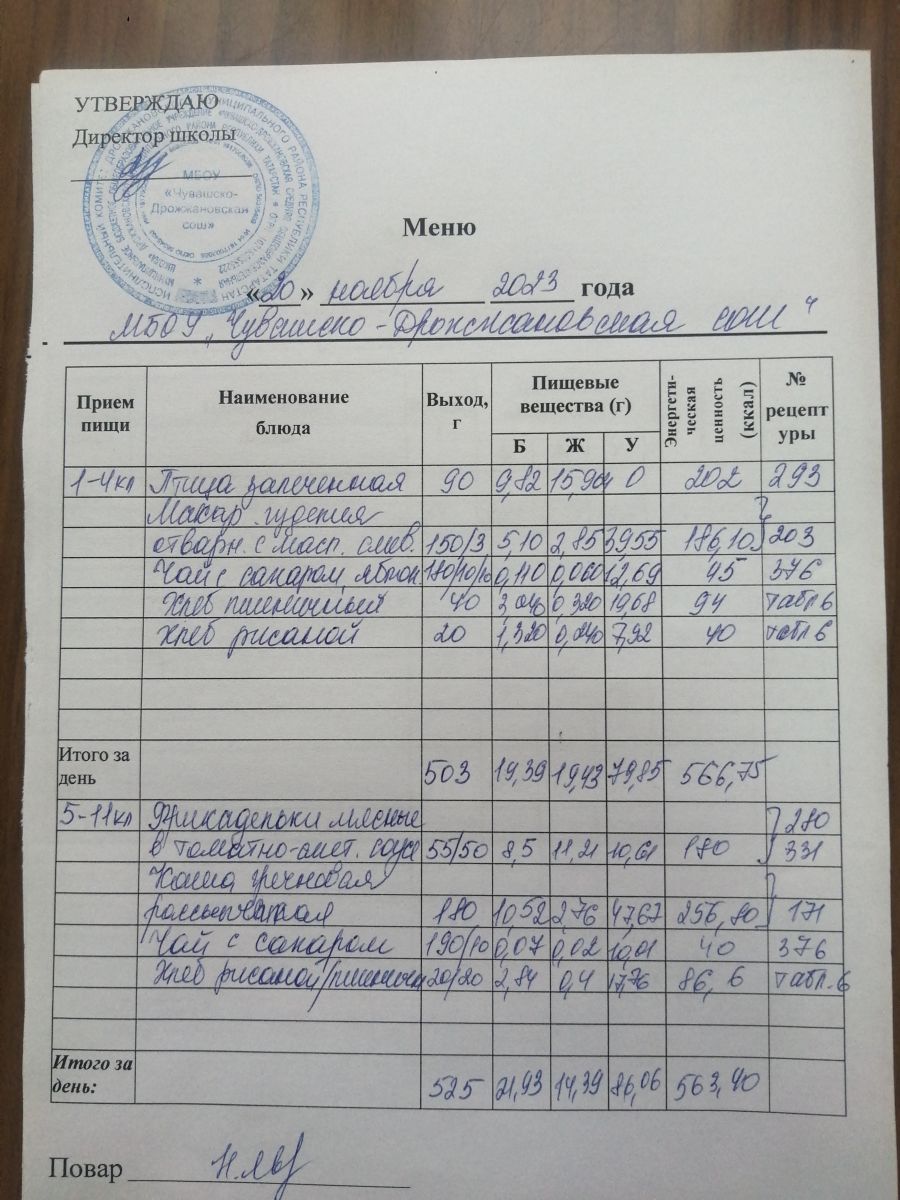 УТВЕРЖДАЮ
Директор школы
МБОУ
«Чувашско-
Дрожжановская
сош»
Меню
«20» ноября 2023 года
МБОУ „Чувашско-Дрожжановская сош"
Прием пищи Наименование блюда Выход, г Пищевые вещества (г) Б Ж У Энергети-ческая ценность (ккал) № рецептуры
1-4кл Птица запеченная 90 9,82 15,964 0 202 293
Макар. изделия
отварн. с масл. слив. 150/3 5,10 2,85 39,55 186,10 203
Чай с сахаром, яблок 180/10/10 0,110 0,060 12,69 45 376
Хлеб пшеничный 40 3,040 0,320 19,68 94 табл 6
Хлеб ржаной 20 1,320 0,240 7,92 40 табл 6
Итого за день 503 19,39 19,43 79,85 566,75
5-11кл Фрикадельки мясные 280
в томатно-смет. соусе 55/50 8,5 11,21 10,61 180 331
Каша гречневая
рассыпчатая 180 10,52 2,76 47,67 256,80 171
Чай с сахаром 190/10 0,07 0,02 10,01 40 376
Хлеб ржаной/пшеничн 20/20 2,84 0,4 17,76 86,6 табл. 6
Итого за день: 525 21,93 14,39 86,06 563,40
Повар